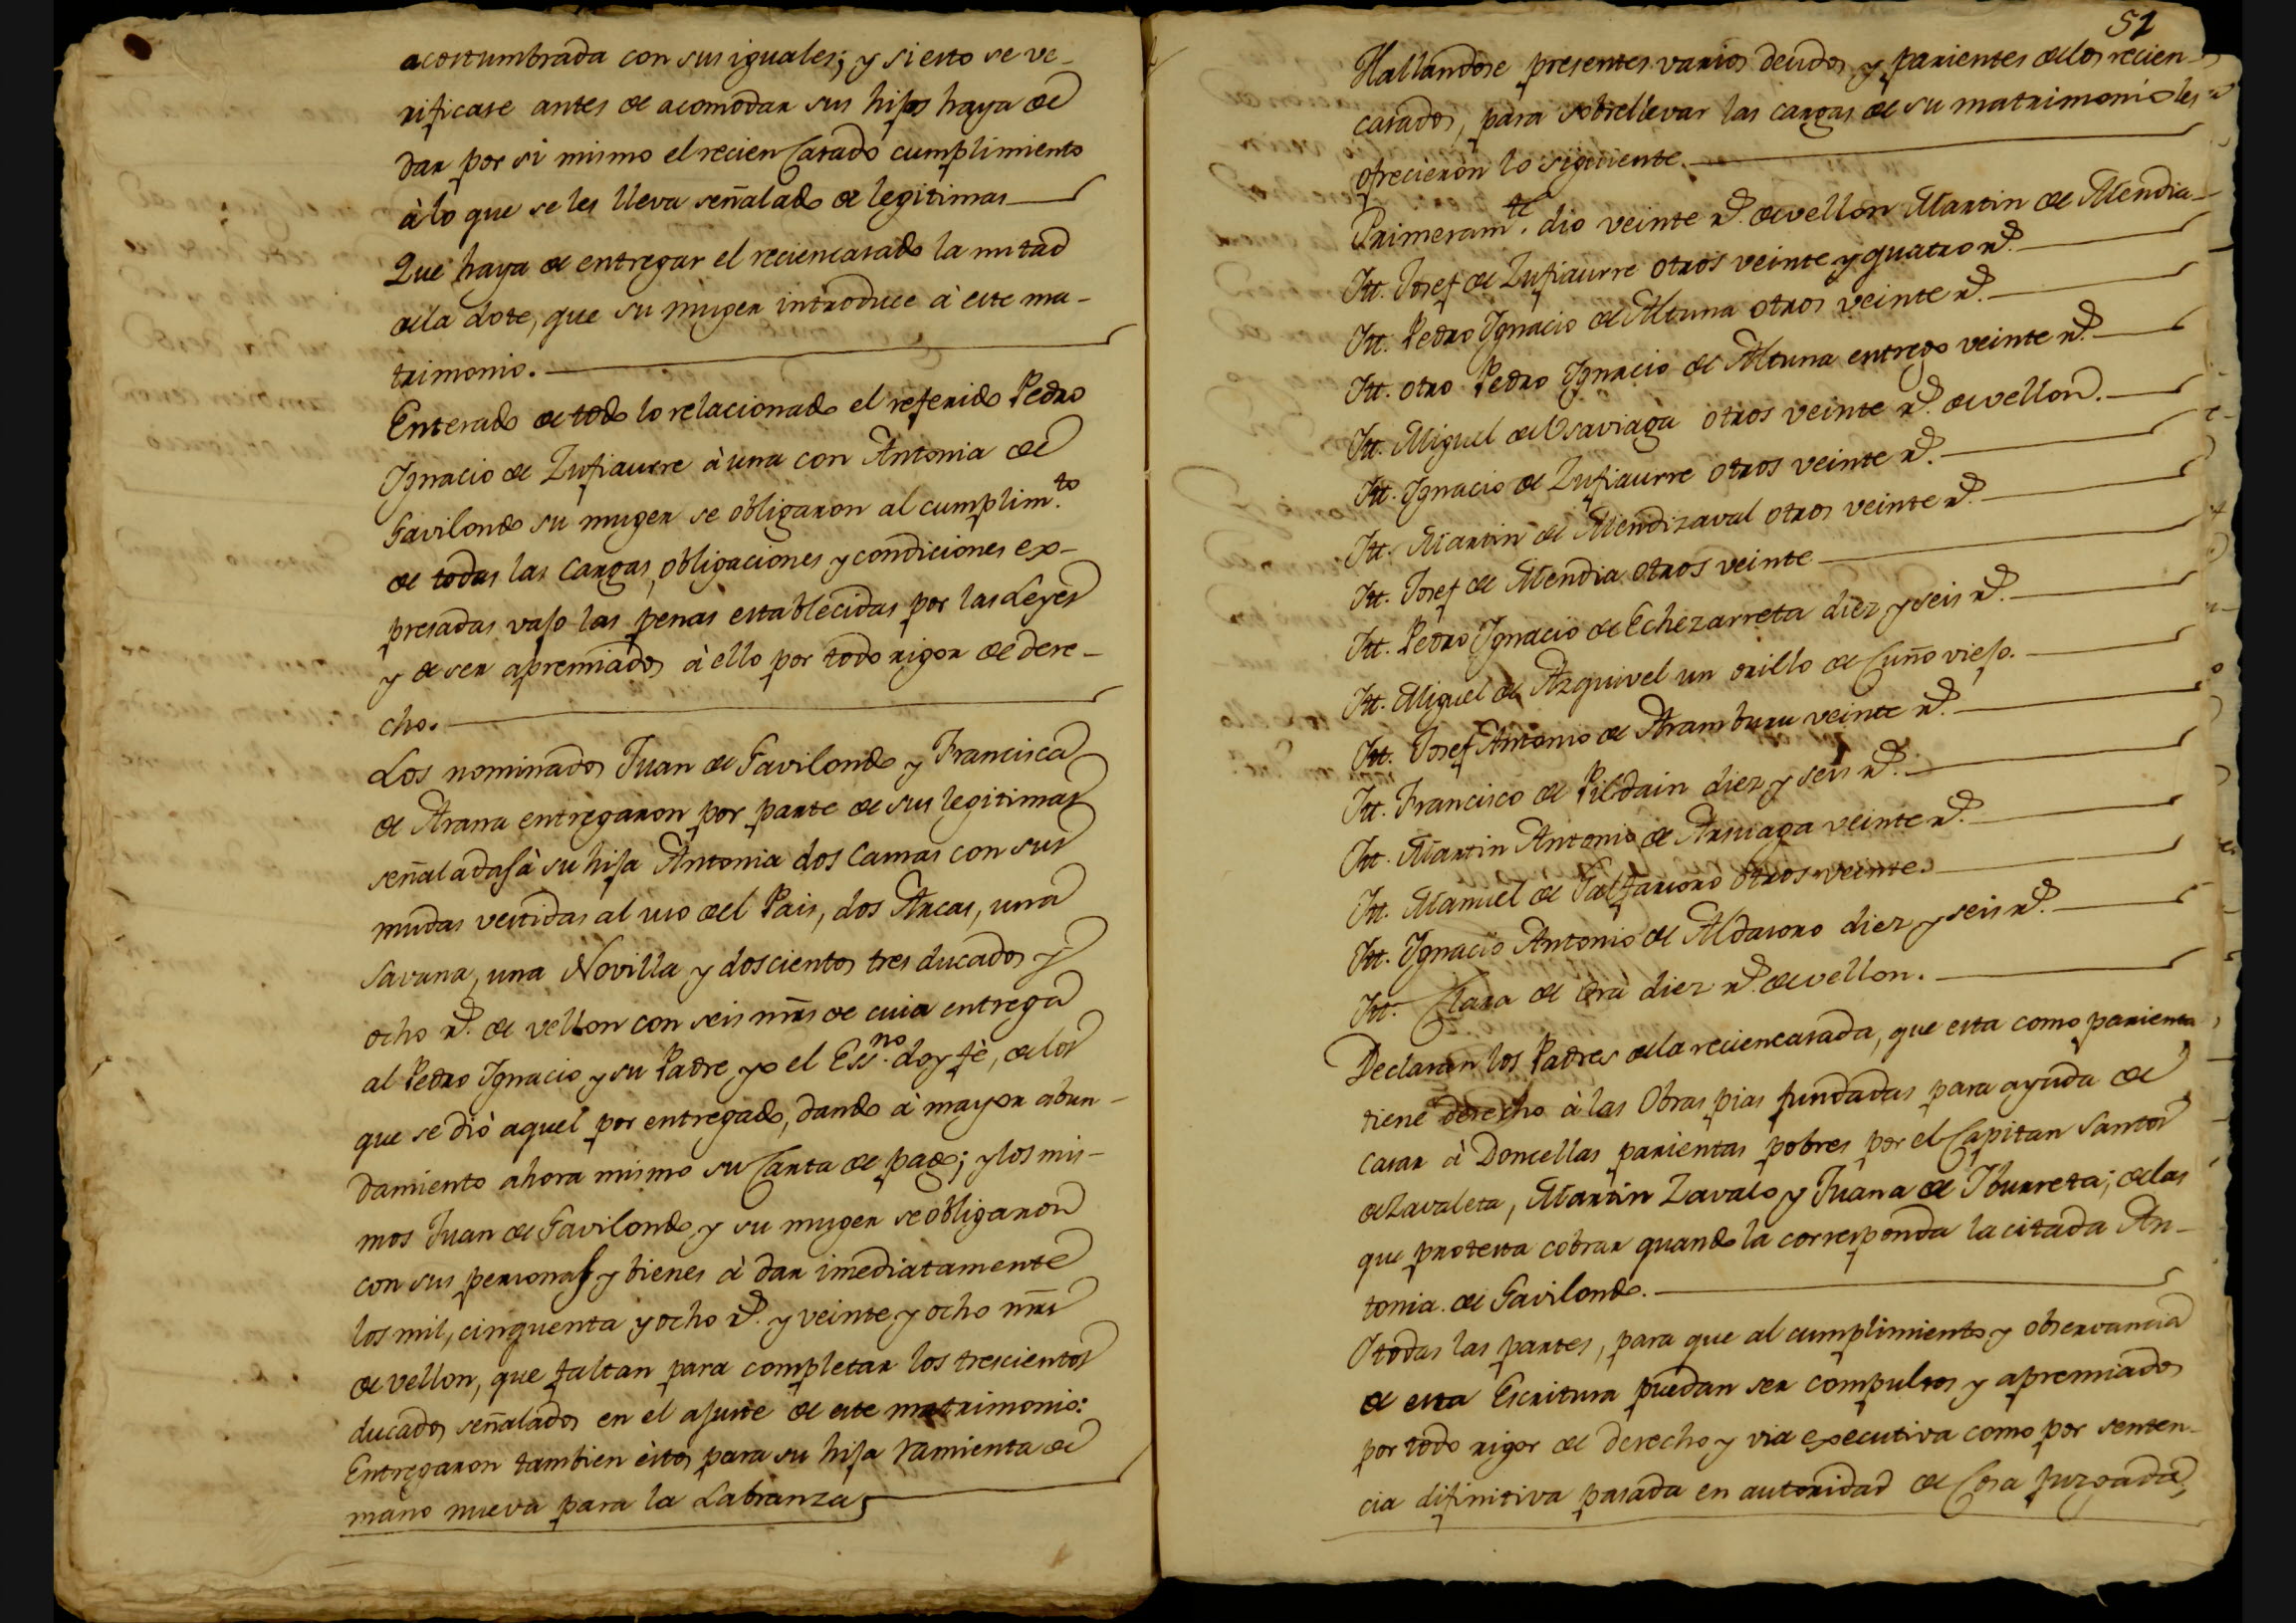 acostumbrada con sus iguales; y si esto se ve-
rificase antes de acomodar sus hijos haya de
dar por si mismo el recien Casado cumplimiento
à lo que se les lleva señalado de legitimas
Que haya de entregar el reciencasado la mitad
de la dote, que su muger introduce à este ma-
trimonio.
Enterado de todo lo relacionado el referido Pedro
Ignacio de Zufiaurre à una con Antonia de
Gavilondo su muger se obligaron al cumplim.to
de todas las cargas, obligaciones y condiciones ex-
presadas vajo las penas establecidas por las Leyes
y de ser apremiados à ello por todo rigor de dere-
cho.
Los nominados Juan de Gavilondo y Francisca
de Arana entregaron por parte de sus legitimas
señaladas à su hija Antonia dos Camas con sus
mudas vestidas al uso del Pais, dos Arcas, una
Savana, una Novilla y doscientos tres ducados y
ocho r.s de vellon con seis mrs de cuia entrega
al Pedro Ignacio y su Padre, yo el Ess.no doy fè, de los
que se diò aquel por entregado, dando à mayor abun-
damiento ahora mismo su Carta de pago; y los mis-
mos Juan de Gavilondo, y su muger se obligaron
con sus personas y bienes à dar imediatamente
los mil, cinquenta y ocho r.s y veinte y ocho mrs
de vellon, que faltan para completar los trescientos
ducados señalados en el ajuste de este matrimonio:
Entregaron tambien èstos para su hija ramienta de
mano nueva para la Labranza,
51
Hallandose presentes varios deudos y parientes de los recien-
casados, para sobrellevar las cargas de su matrimonio les
ofrecieron lo siguiente.
Primeram.te dio veinte r.s de vellon Martin de Mendia
Itt. Josef de Zufiaurre otros veinte y quatro r.s
Itt. Pedro Ignacio de Altuna otros veinte r.s
Itt. otro Pedro Ignacio de Altuna entrego veinte r.s
Itt. Miguel de Usaviaga otros veinte r.s de vellon.
Itt. Ignacio de Zufiaurre otros veinte r.s
Itt. Martin de Mendizaval otros veinte r.s
Itt. Josef de Mendia otros veinte
Itt. Pedro Ignacio de Echezarreta diez y seis r.s
Itt. Miguel de Azquivel un orillo de Cuño viejo.
Itt. Josef Antonio de Aramburu veinte r.s
Itt. Francisco de Pildain diez y seis r.s
Itt. Martin Antonio de Arsuaga veinte r.s
Itt. Manuel de Galfarsoro otros veinte.
Itt. Ignacio Antonio de Aldasoro diez y seis r.s
Itt. Clara de diez r.s de vellon.
Declaran los Padres de la reciencasada, que esta como parienta
tiene derecho à las Obras pias fundadas para ayuda de
casar à Doncellas parientas pobres por el Capitan Santos
de Zavaleta, Martin Zavalo y Juana de Iburreta; de las
que protesta cobrar quando la corresponda la citada An-
tonia de Gavilondo.
I todas las partes, para que al cumplimiento y observancia
de esta Escritura puedan ser compulsos y apremiados
por todo rigor de derecho y via executiva como por senten-
cia difinitiva pasada en autoridad de Cosa juzgada,